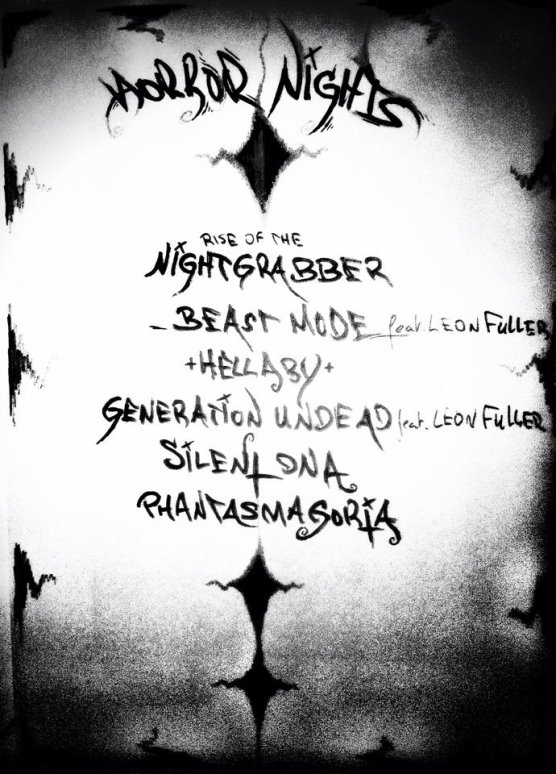 HORROR NIGHTS
RISE OF THE
NIGHTGRABBER
- BEAST MODE feat LEON FULLER
+HELLABY+
GENERATION UNDEAD feat. LEON FULLER
SILENT DNA
PHANTASMAGORIA